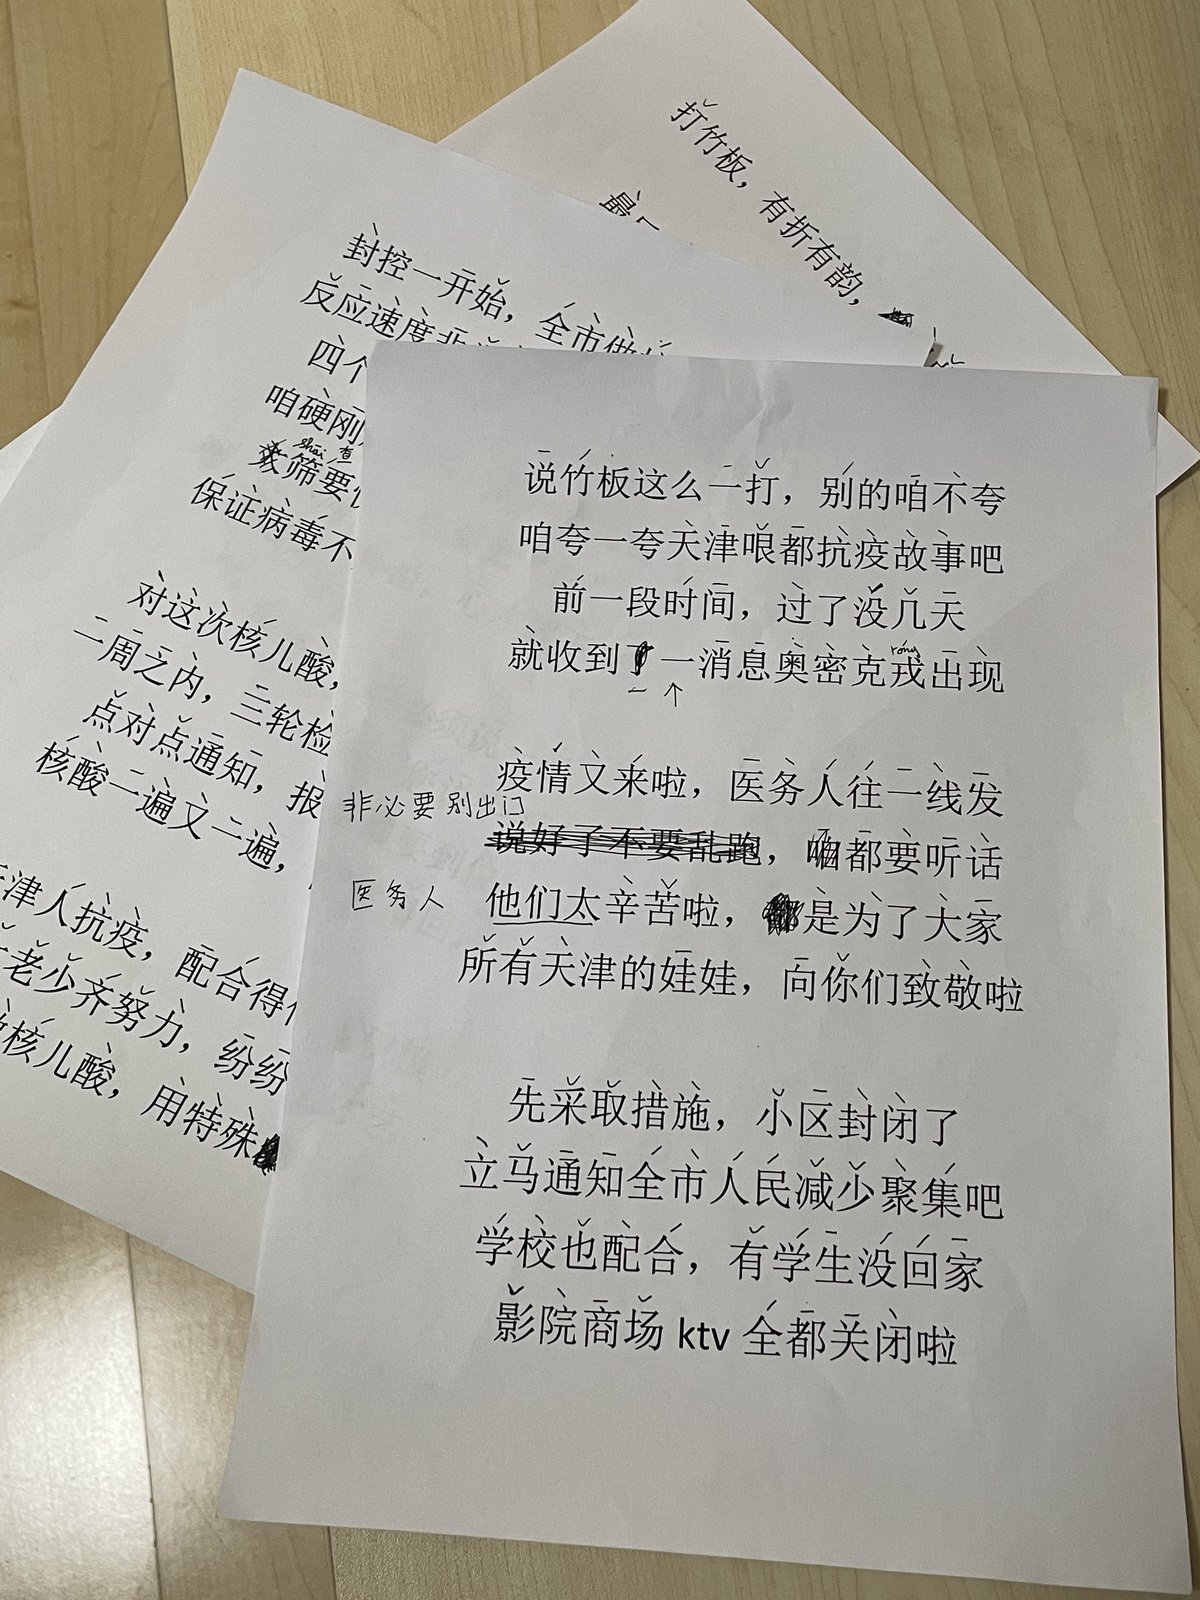 打竹板，有折有韵，
最
封控一开始，全市做
反应速度非
四个
咱硬刚
shāi 查
筛要
保证病毒不
对这次核儿酸，
二周之内，三轮检
点对点通知，报
核酸一遍又一遍，
津人抗疫，配合得
老少齐努力，纷纷
核儿酸，用特殊
说竹板这么一打，别的咱不夸
咱夸一夸天津哏都抗疫故事吧
前一段时间，过了没几天
róng
就收到一消息奥密克戎出现
疫情又来啦，医务人往一线发
非必要别出门
说好了不要乱跑，咱都要听话
医务人
他们太辛苦啦，都是为了大家
所有天津的娃娃，向你们致敬啦
先采取措施，小区封闭了
立马通知全市人民减少聚集吧
学校也配合，有学生没回家
影院商场 ktv 全都关闭啦